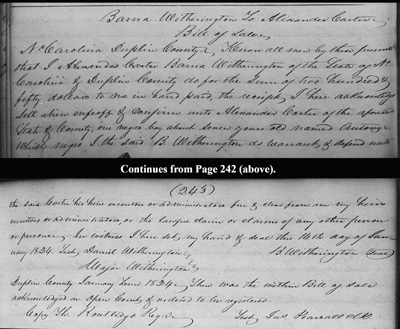 Barna Witherington To Alexander Carter
Bill of Sale
No Carolina Duplin County, Know all men by these presents
that I Alexander Carter Barna Witherington of the State of No
Carolina & Duplin County do for the Sum of two hundred &
fifty dollars to me in hand paid, the receipt, I here acknowledge
Sell alien enfeoff & confirm unto Alexander Carter of the aforesaid
State & County, one negro boy about seven years old named
Which negro I the said B. Witherington do warrant & defend unto
Continues from Page 242 (above).
(243)
the said Carter his heirs executors or administrators free & clear from me my heirs
executors or administrators, or the lawful claim or claims of any other person
or persons, In witness I here set my hand & seal this 14th day of Jan
uary 1824. Test Daniel Witherington, B. Witherington Seal
Major Witherington
Duplin County January Term 1824. Then was the within Bill of Sale
acknowledged in Open Court & ordered to be registered.
Copy Tho Routledge Regr Test, Jas. Pearsall Clk